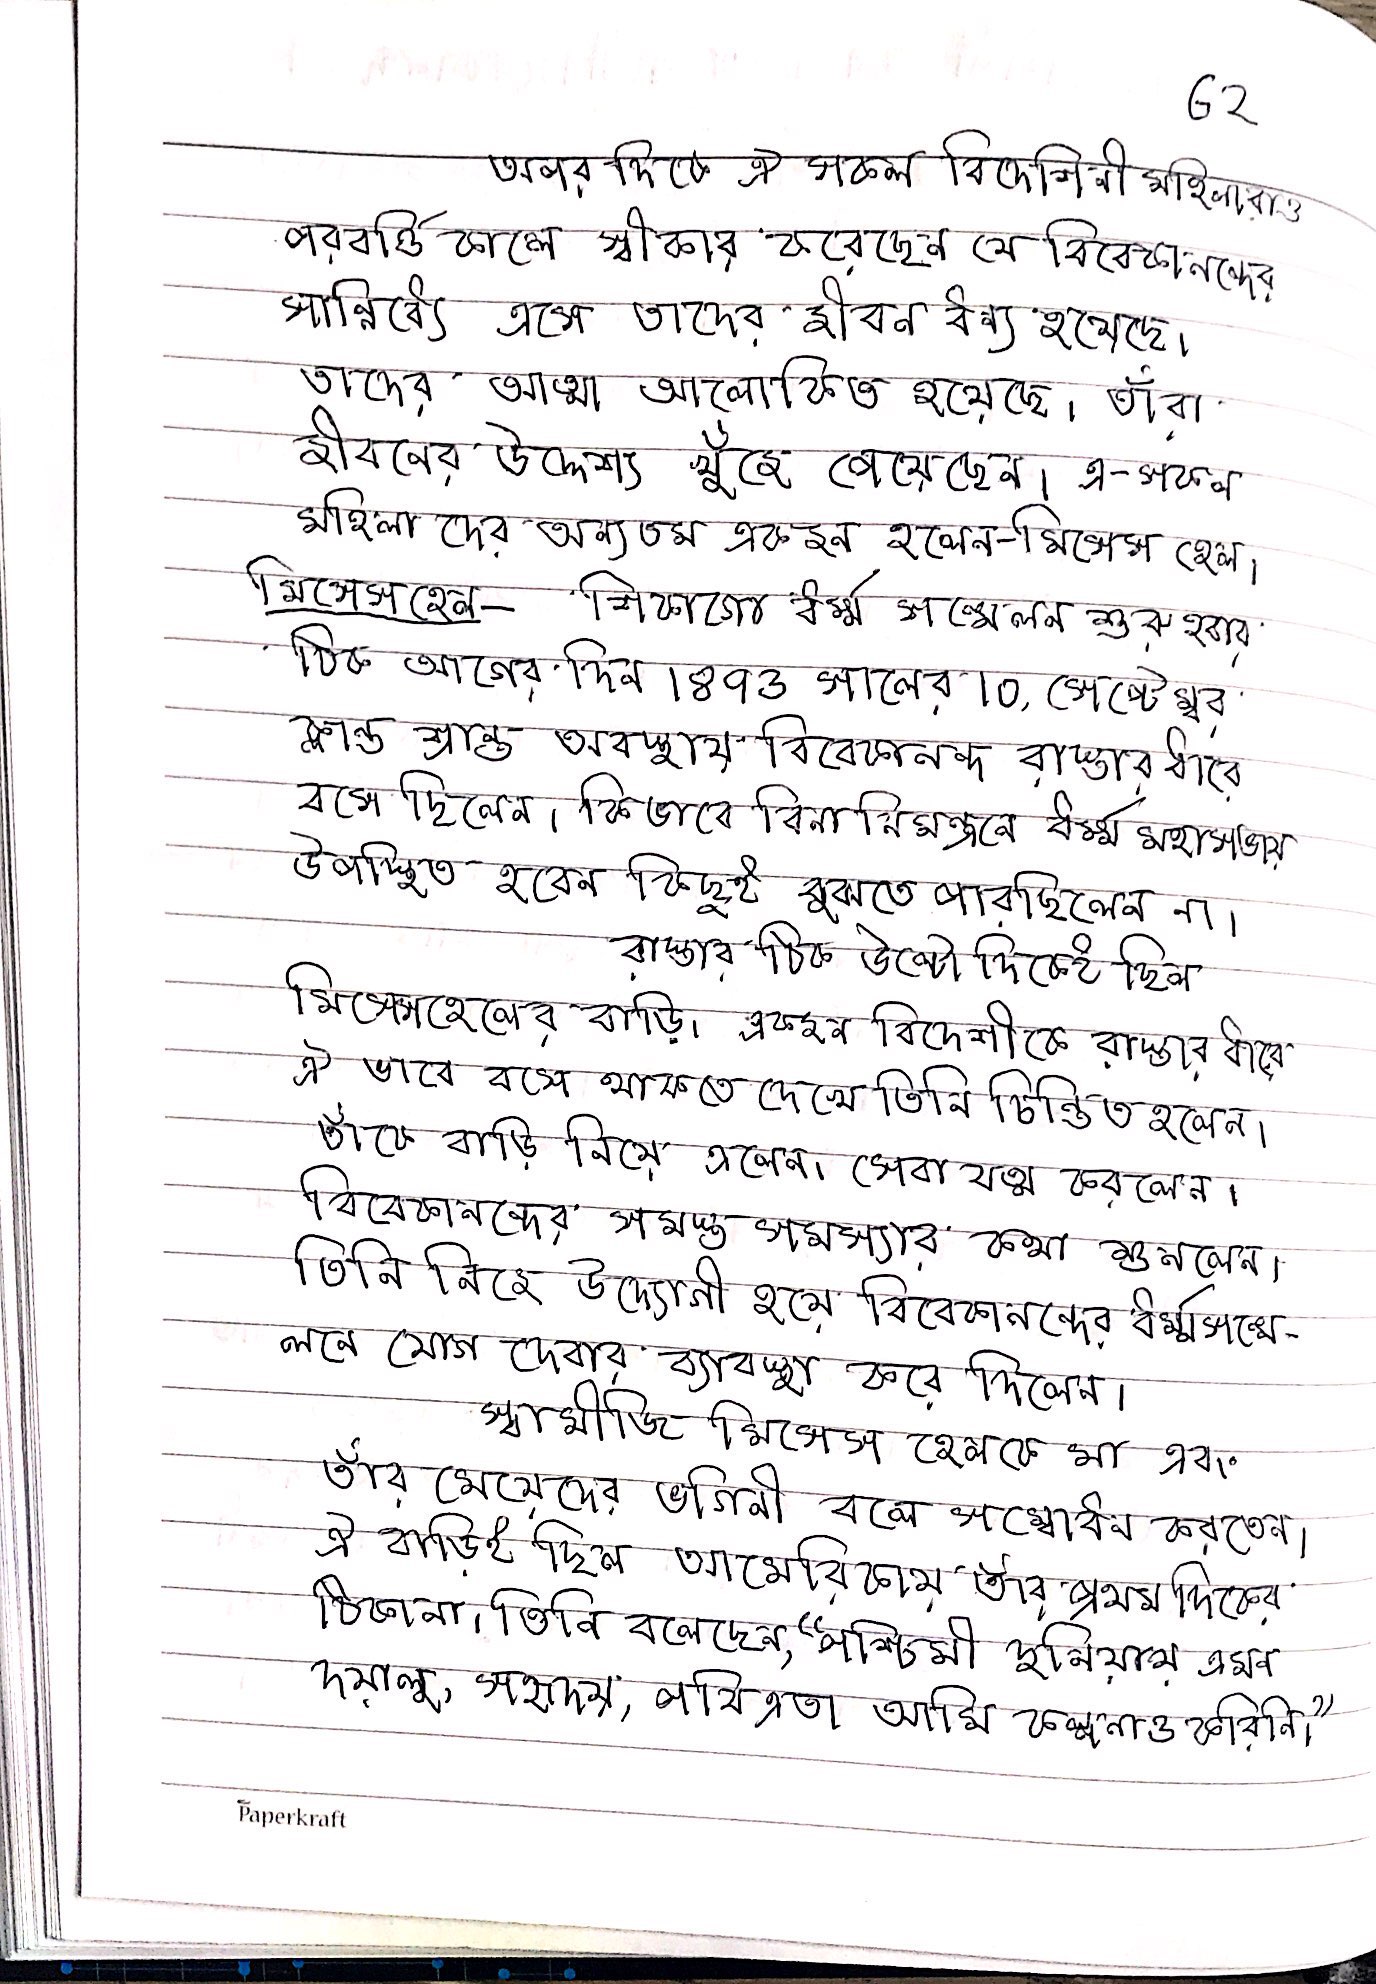 ৫২
অপর দিকে ঐ সকল বিদেশিনী মহিলারাও
পরবর্ত্তি কালে স্বীকার করেছেন যে বিবেকানন্দের
সান্নিধ্যে এসে তাদের জীবন ধন্য হয়েছে।
তাদের আত্মা আলোকিত হয়েছে। তাঁরা
জীবনের উদ্দেশ্য খুঁজে পেয়েছেন। এ-সকল
মহিলা দের অন্যতম একজন হলেন-মিসেস হেল।
মিসেসহেল- শিকাগো ধর্ম্ম সম্মেলন শুরু হবার
ঠিক আগের দিন 1893 সালের 10, সেপ্টেম্বর
ক্লান্ত শ্রান্ত অবস্থায় বিবেকানন্দ রাস্তার ধারে
বসে ছিলেন। কিভাবে বিনা নিমন্ত্রনে ধর্ম্ম মহাসভায়
উপস্থিত হবেন কিছুই বুঝতে পারছিলেন না।
রাস্তার ঠিক উল্টো দিকেই ছিল
মিসেসহেলের বাড়ি। একজন বিদেশীকে রাস্তার ধারে
ঐ ভাবে বসে থাকতে দেখে তিনি চিন্তিত হলেন।
তাঁকে বাড়ি নিয়ে এলেন। সেবা যত্ন করলেন।
বিবেকানন্দের সমস্ত সমস্যার কথা শুনলেন।
তিনি নিজে উদ্যোগী হয়ে বিবেকানন্দের ধর্ম্মসম্মে-
লনে যোগ দেবার ব্যাবস্থা করে দিলেন।
স্বামীজি মিসেস হেলকে মা এবং
তাঁর মেয়েদের ভগিনী বলে সম্বোধন করতেন।
ঐ বাড়িই ছিল আমেরিকায় তাঁর প্রথম দিকের
ঠিকানা। তিনি বলেছেন, “পশ্চিমী দুনিয়ায় এমন
দয়ালু, সহৃদয়, পবিত্রতা আমি কল্পনাও করিনি।”
Paperkraft